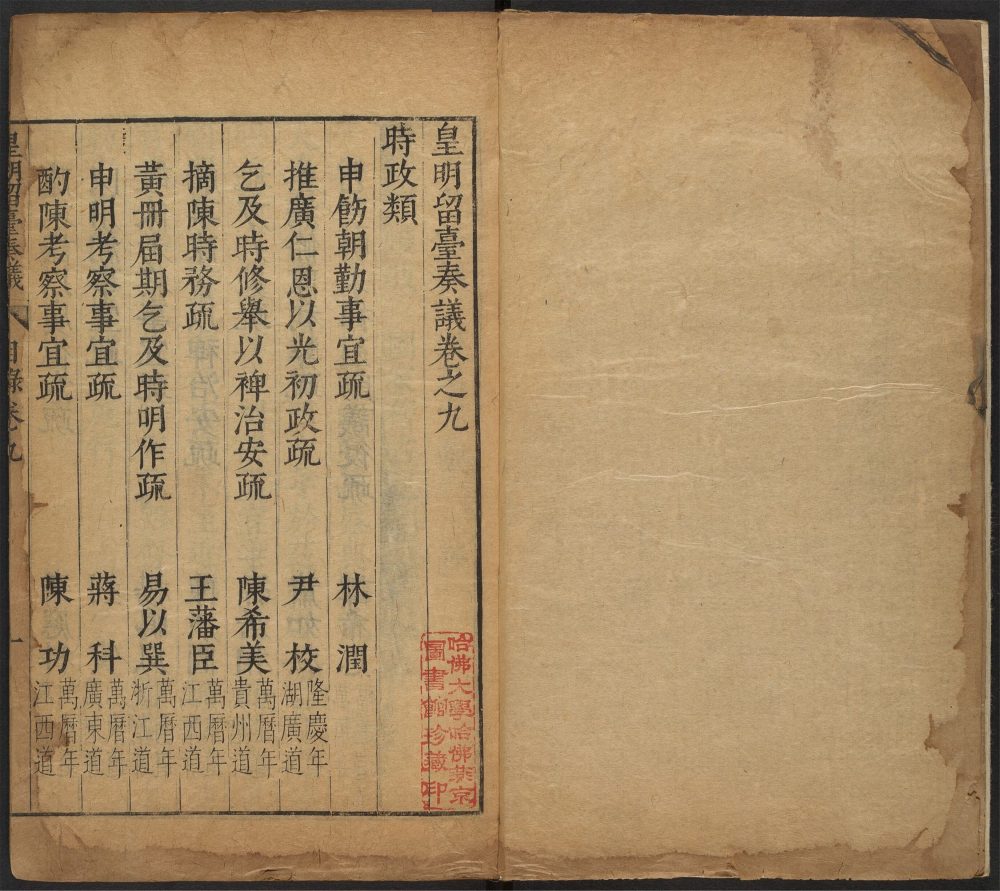 皇明留臺奏議卷之九
時政類
申飭朝勤事宜疏 林潤
推廣仁恩以光初政疏 尹校 隆慶年 湖廣道
乞及時修舉以裨治安疏 陳希美 萬曆年 貴州道
摘陳時務疏 王藩臣 萬曆年 江西道
黃冊屆期乞及時明作疏 易以巽 萬曆年 浙江道
申明考察事宜疏 蔣科 萬曆年 廣東道
酌陳考察事宜疏 陳功 萬曆年 江西道
皇明留臺奏議 目錄卷九 一
哈佛大學哈佛燕京
圖書館珍藏印